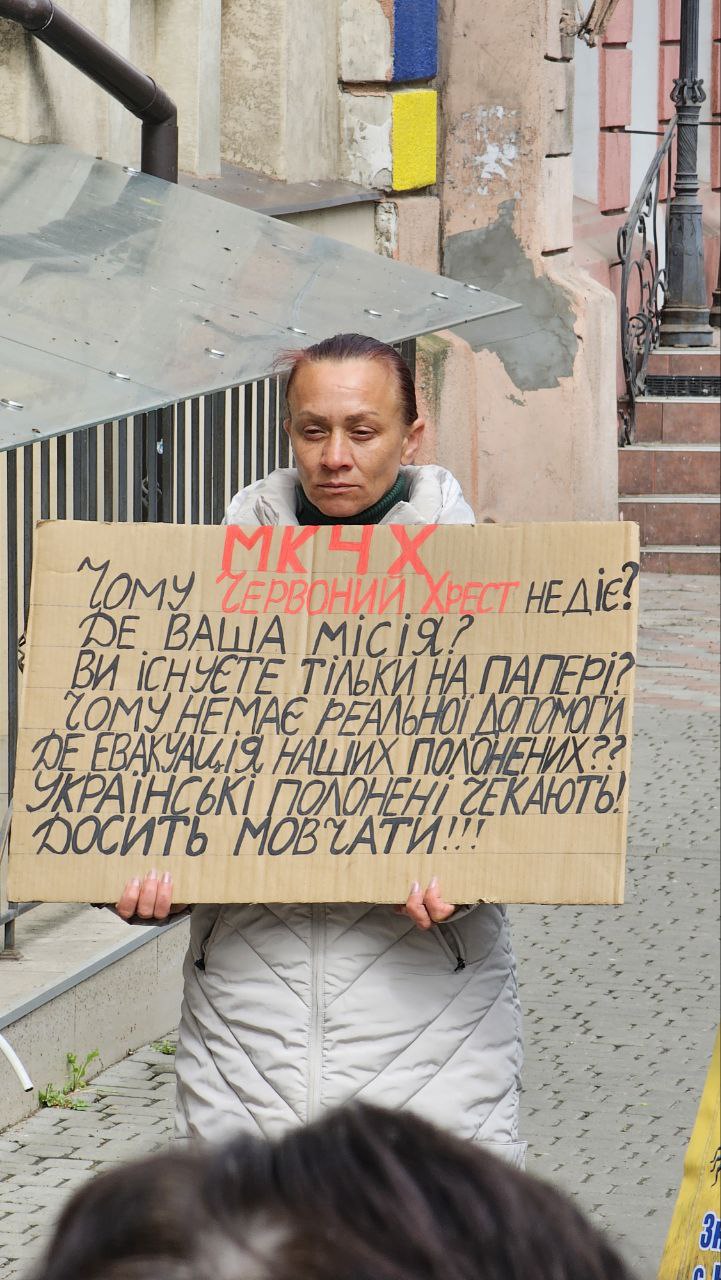 МКЧХ
ЧОМУ ЧЕРВОНИЙ ХРЕСТ НЕДІЄ?
ДЕ ВАША МІСІЯ?
ВИ ІСНУЄТЕ ТІЛЬКИ НА ПАПЕРІ?
ЧОМУ НЕМАЄ РЕАЛЬНОЇ ДОПОМОГИ
ДЕ ЕВАКУАЦІЯ НАШИХ ПОЛОНЕНИХ??
УКРАЇНСЬКІ ПОЛОНЕНІ ЧЕКАЮТЬ!
ДОСИТЬ МОВЧАТИ!!!